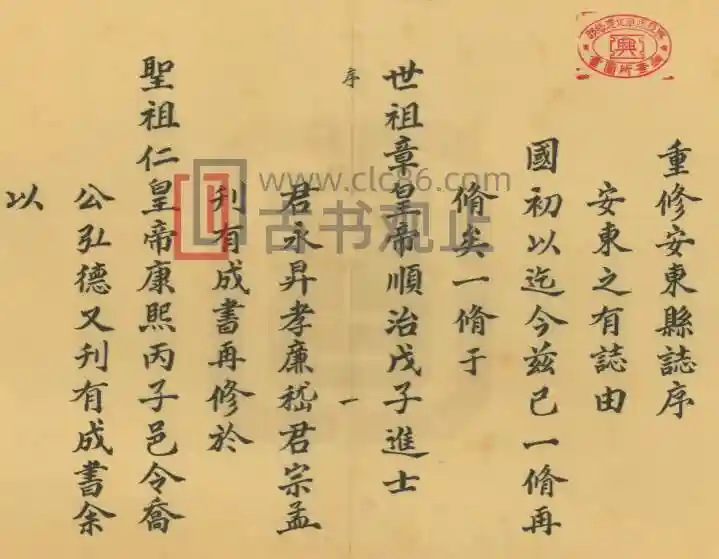 重修安東縣誌序
安東之有誌由
國初以迄今茲已一脩再
脩矣一脩于
世祖章皇帝順治戊子進士
序
一
君永昇孝廉嵇君宗孟
刊有成書再修於
聖祖仁皇帝康熙丙子邑令喬
公弘德又刊有成書余
以
www.clc86.com
古书观止